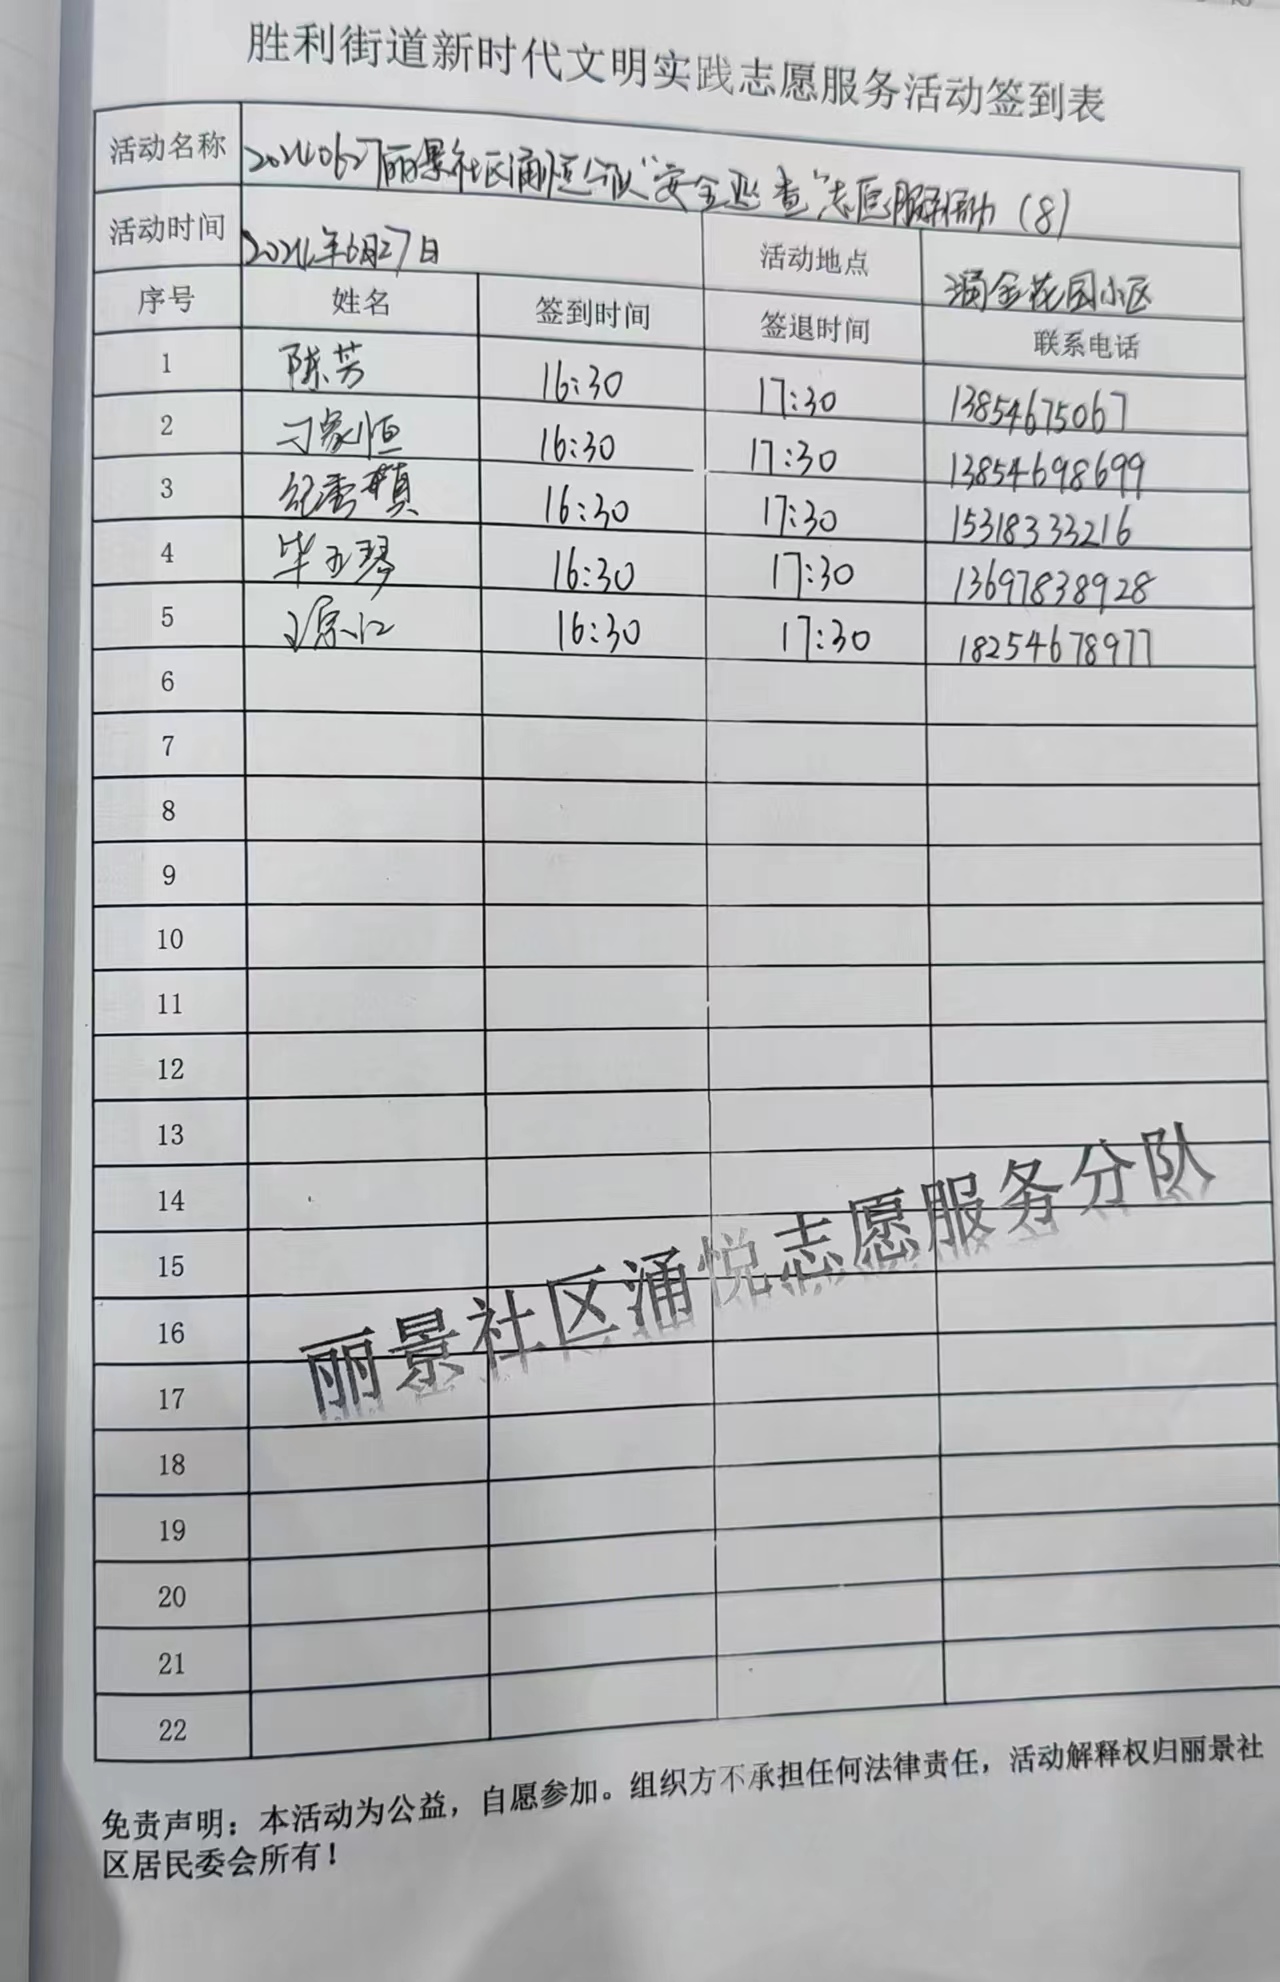 胜利街道新时代文明实践志愿服务活动签到表
活动名称 20240627丽景社区涌悦分队“安全巡查”志愿服务活动（8）
活动时间 2024年6月27日 活动地点 花园小区
序号 姓名 签到时间 签退时间 联系电话
1 陈芳 16:30 17:30 13854675067
2 刁家恒 16:30 17:30 13854698699
3 纪秀 16:30 17:30 15318333216
4 毕玉琴 16:30 17:30 13697838928
5 16:30 17:30 18254678977
6
7
8
9
10
11
12
13
14
15
16
17
18
19
20
21
22
丽景社区涌悦志愿服务分队
免责声明：本活动为公益，自愿参加。组织方不承担任何法律责任，活动解释权归丽景社
区居民委会所有！